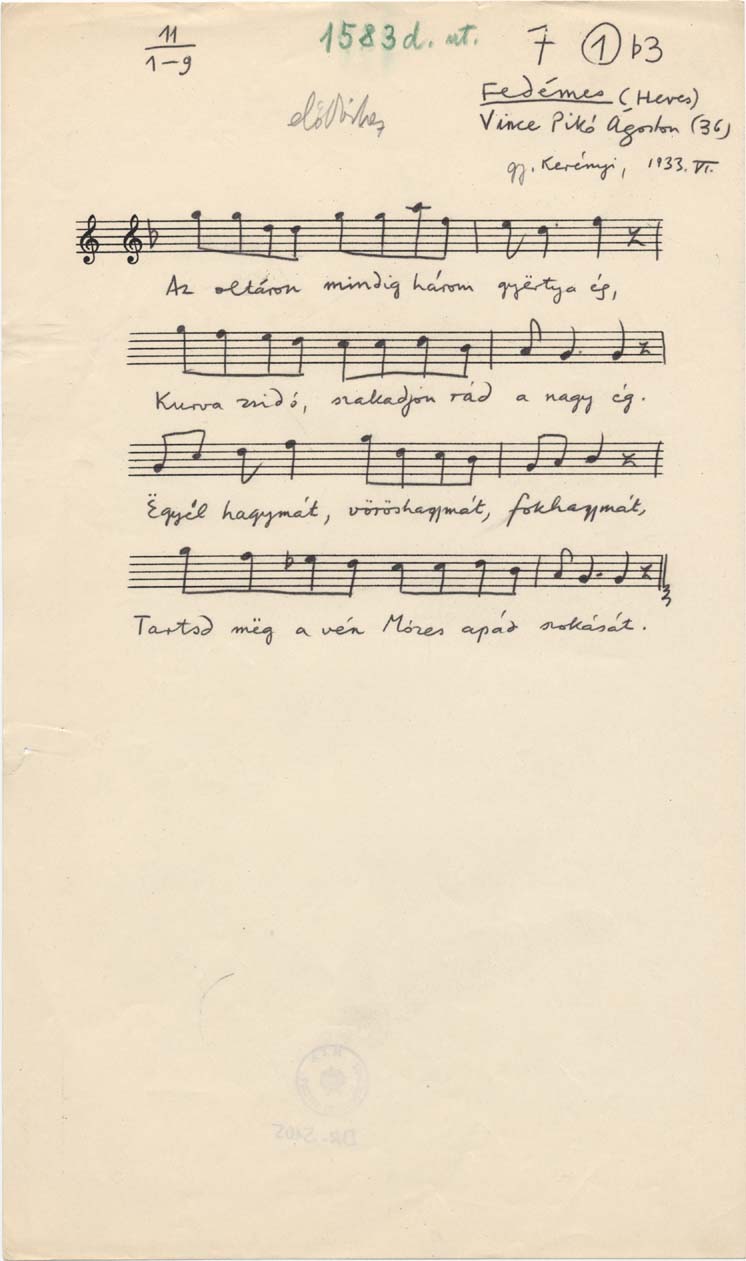 11
1-9
1583 d. ut.
7 1 b3
Fedémes (Heves)
Vince Pikó Ágoston (36)
gy. Kerényi, 1933. VI.
Az oltáron mindig három gyërtya ég,
Kurva zsidó, szakadjon rád a nagy ég.
Ëgyél hagymát, vöröshagymát, fokhagymát,
Tartsd mëg a vén Mózes apád szokását.